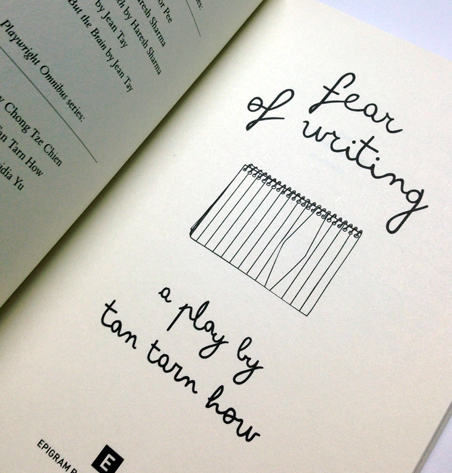 or Pee
resh Sharma
th by Haresh Sharma
by Jean Tay
But the Brain by Jean Tay
Playwright Omnibus series:
Chong Tze Chien
Tan Tarn How
idia Yu
fear
of writing
a play by
tan tarn how
EPIGRAM
E